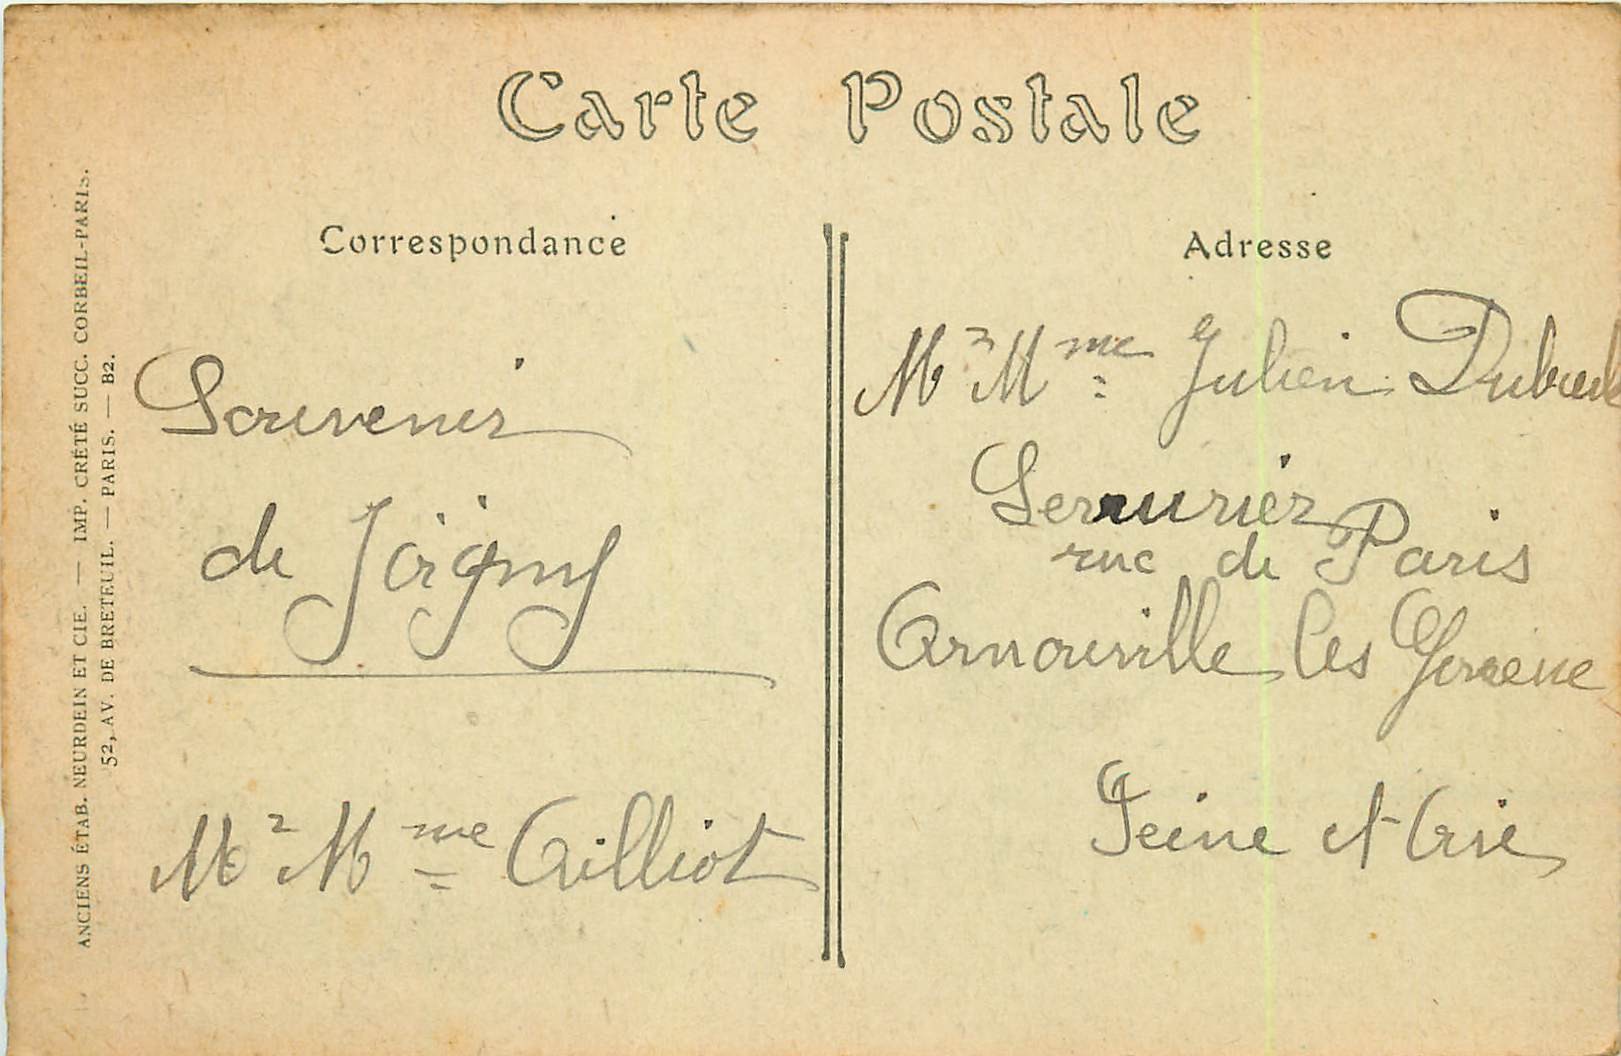 Carte Postale
Correspondance
Souvenir
de Joigny
Mr Mme
Adresse
Mr Mme Julien
Serrurier
rue de Paris
Arnouville les Gonesse
Seine et Oise
ANCIENS ÉTAB. NEURDEIN ET CIE. — IMP. CRÉTÉ SUCC. CORBEIL-PARIS.
52, AV. DE BRETEUIL. — PARIS. — B2.